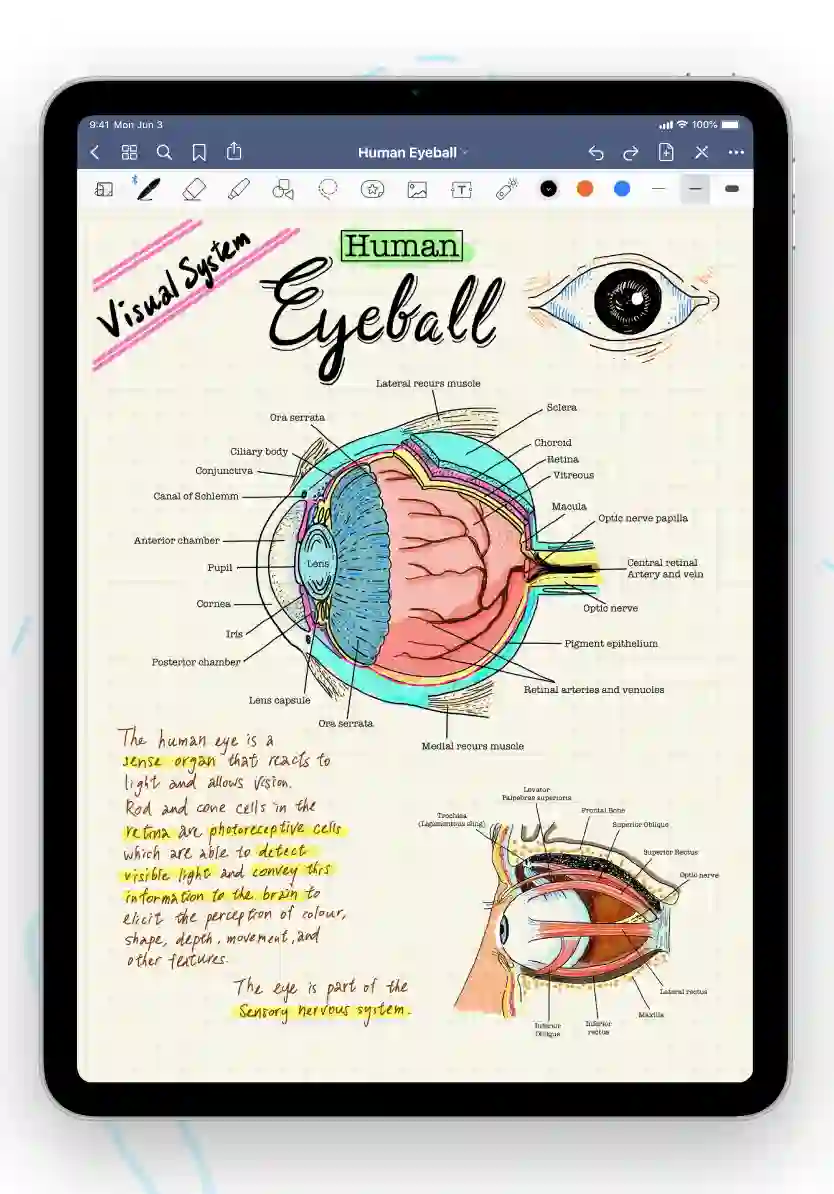 9:41 Mon Jun 3
100%
Human Eyeball
T
Visual System
Human
Eyeball
Lateral recurs muscle
Ora serrata
Sclera
Ciliary body
Choroid
Conjunctiva
Retina
Vitreous
Canal of Schlemm
Macula
Optic nerve papilla
Anterior chamber
Pupil
Lens
Central retinal
Artery and vein
Cornea
Optic nerve
Iris
Pigment epithelium
Posterior chamber
Retinal arteries and venuoles
Lens capsule
Ora serrata
Medial recurs muscle
The human eye is a
sense organ that reacts to
light and allows vision.
Rod and cone cells in the
retina are photoreceptive cells
which are able to detect
visible light and convey this
information to the brain to
elicit the perception of colour,
shape, depth, movement, and
other features.
The eye is part of the
Sensory nervous system.
Levator
Palpebrae superioris
Frontal Bone
Trochlea
(Ligamentous sling)
Superior Oblique
Superior Rectus
Optic nerve
Lateral rectus
Maxilla
Inferior
Oblique
Inferior
rectus